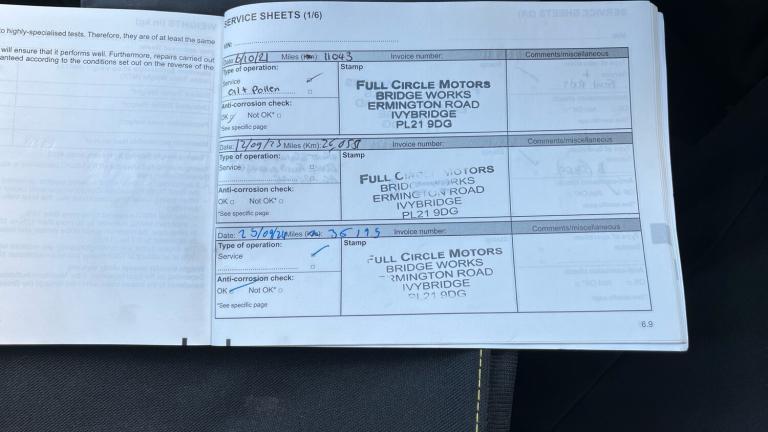 o highly-specialised tests. Therefore, they are of at least the same
will ensure that it performs well. Furthermore, repairs carried out
anteed according to the conditions set out on the reverse of the
SERVICE SHEETS (1/6)
VIN:
Date: 6/10/21 Miles (Km): 11043 Invoice number: Comments/miscellaneous
Type of operation: Stamp
Service
Oil + Pollen
Anti-corrosion check:
OK Not OK*
*See specific page
FULL CIRCLE MOTORS
BRIDGE WORKS
ERMINGTON ROAD
IVYBRIDGE
PL21 9DG
Date: 12/09/23 Miles (Km): Invoice number: Comments/miscellaneous
Type of operation: Stamp
Service
Anti-corrosion check:
OK Not OK*
*See specific page
FULL CIRCLE MOTORS
BRIDGE WORKS
ERMINGTON ROAD
IVYBRIDGE
PL21 9DG
Date: 25/09/24 Miles (Km): 36195 Invoice number: Comments/miscellaneous
Type of operation: Stamp
Service
Anti-corrosion check:
OK Not OK*
*See specific page
FULL CIRCLE MOTORS
BRIDGE WORKS
ERMINGTON ROAD
IVYBRIDGE
PL21 9DG
6.9